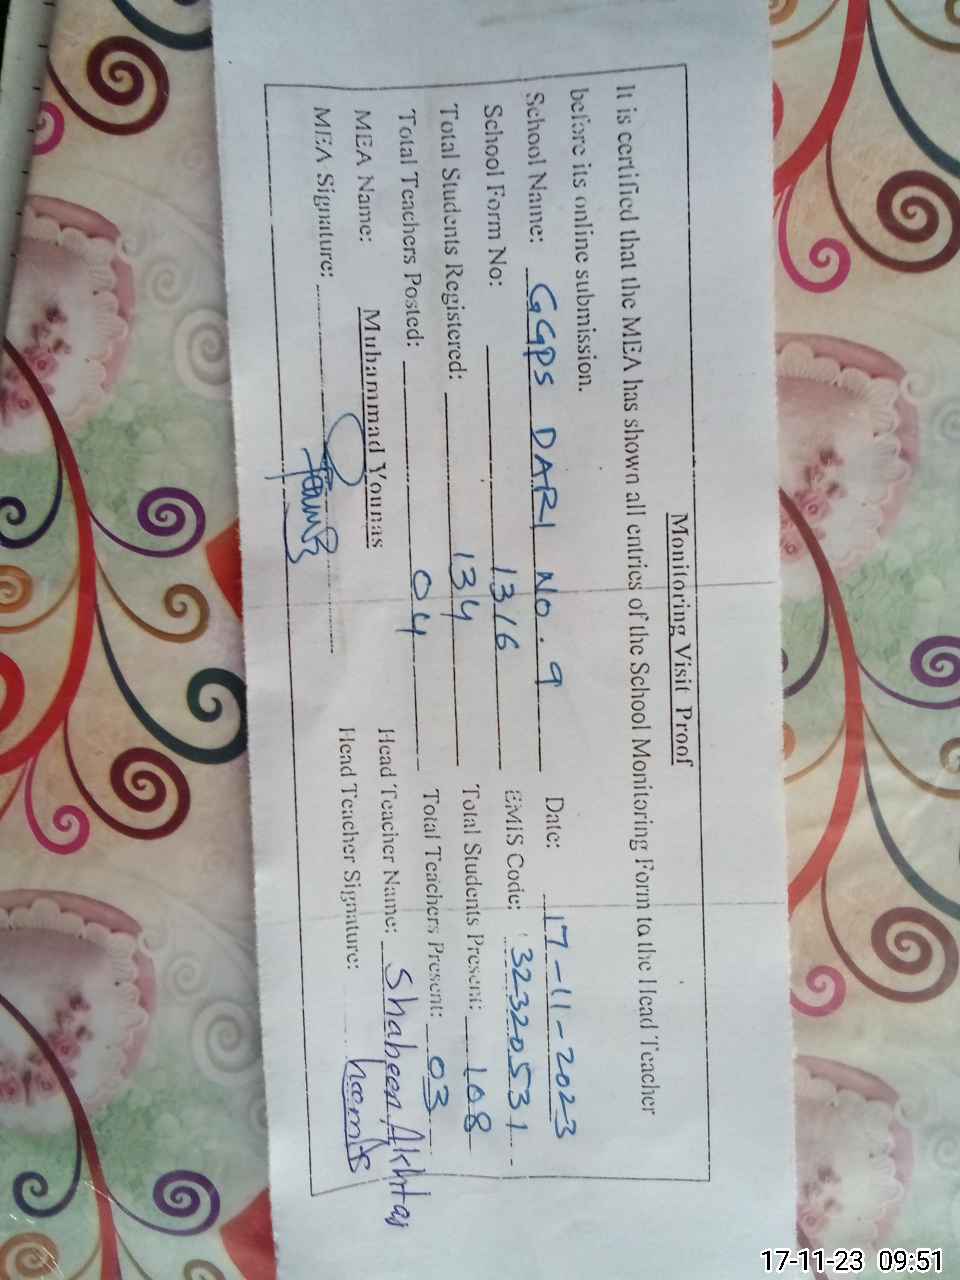 Monitoring Visit Proof
It is certified that the MEA has shown all entries of the School Monitoring Form to the Head Teacher
before its online submission.
School Name: GGPS DARI NO. 9 Date: 17-11-2023
School Form No: 1316 EMIS Code: 32320531
Total Students Registered: 134 Total Students Present: 108
Total Teachers Posted: 04 Total Teachers Present: 03
MEA Name: Muhammad Younas Head Teacher Name: Shaheen Akhtar
MEA Signature: Head Teacher Signature:
17-11-23 09:51